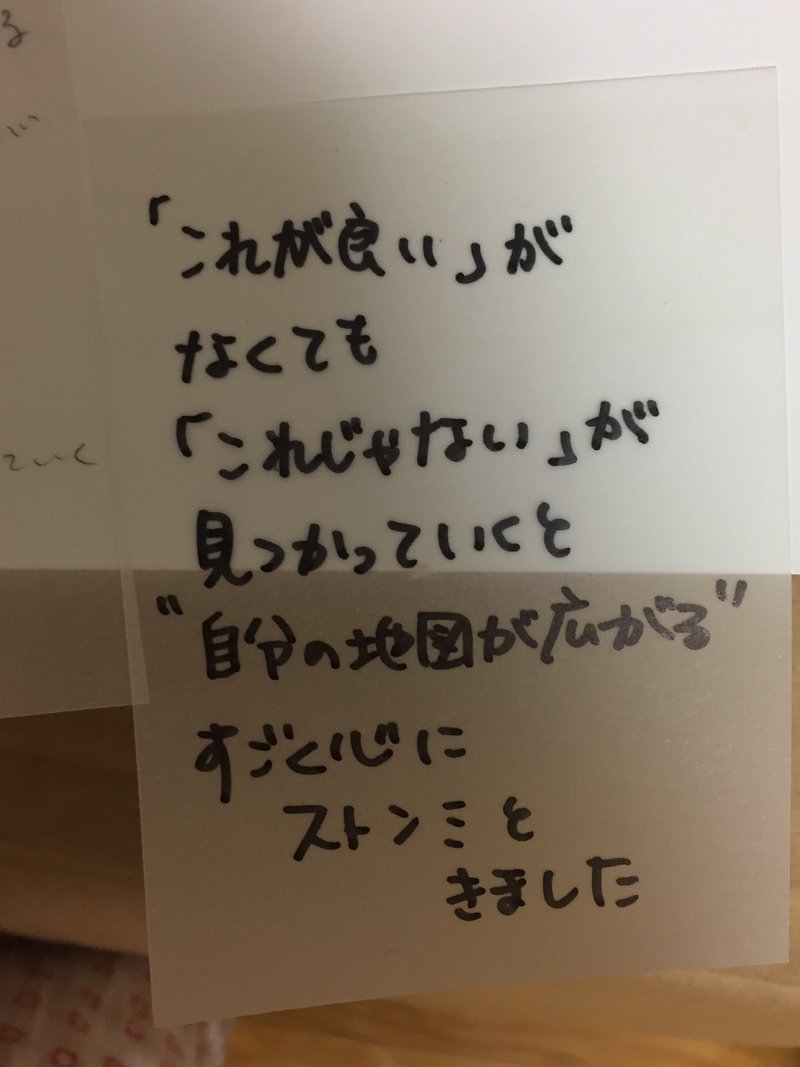 る
ていく
「これが良い」が
なくても
「これじゃない」が
見つかっていくと
"自分の地図が広がる"
すごく心に
ストンミと
きました